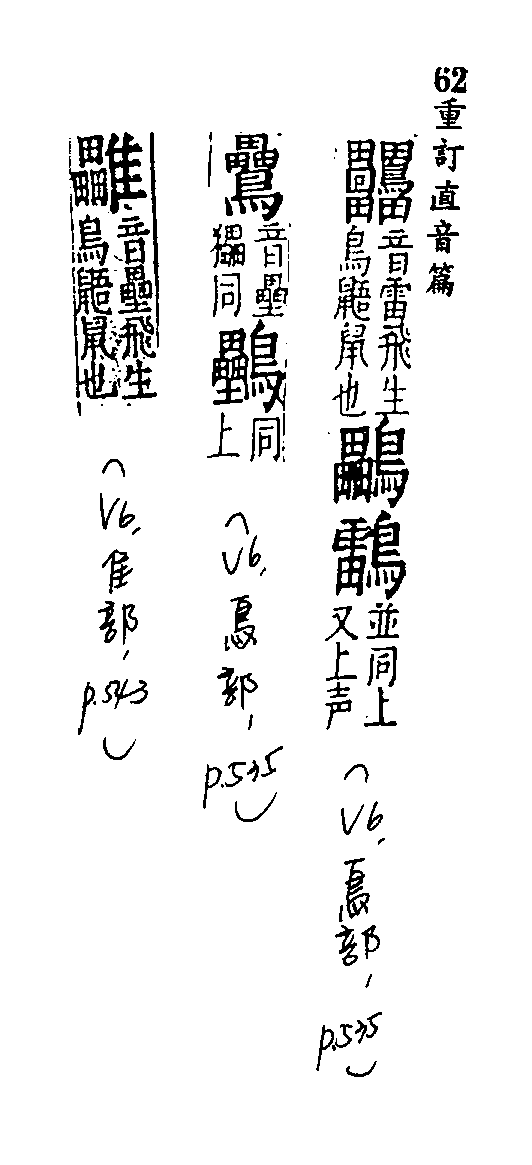 62重訂直音篇
音雷飛生
鳥鼯鼠也
鸓
並同上
又上声
(V6.鳥部,p.535)
音壘
同
同
上
(V6.鳥部,p.535)
音壘飛生
鳥鼯鼠也
(V6.隹部,p.543)